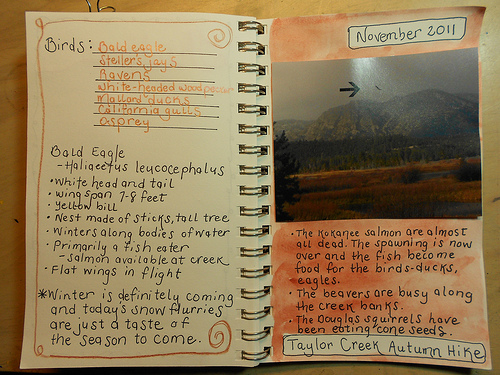 Birds: Bald eagle
Steller's Jays
Ravens
White-headed woodpecker
Mallard ducks
California gulls
Osprey
Bald Eagle
- Haliaeetus leucocephalus
• White head and tail
• wing span 7-8 feet
• yellow bill
• Nest made of sticks, tall tree
• Winters along bodies of water
• Primarily a fish eater
- salmon available at creek
• Flat wings in flight
*Winter is definitely coming
and today's snow flurries
are just a taste of
the season to come.
November 2011
• The Kokanee salmon are almost
all dead. The spawning is now
over and the fish become
food for the birds-ducks,
eagles.
• The beavers are busy along
the creek banks.
• The Douglas squirrels have
been eating cone seeds.
Taylor Creek Autumn Hike